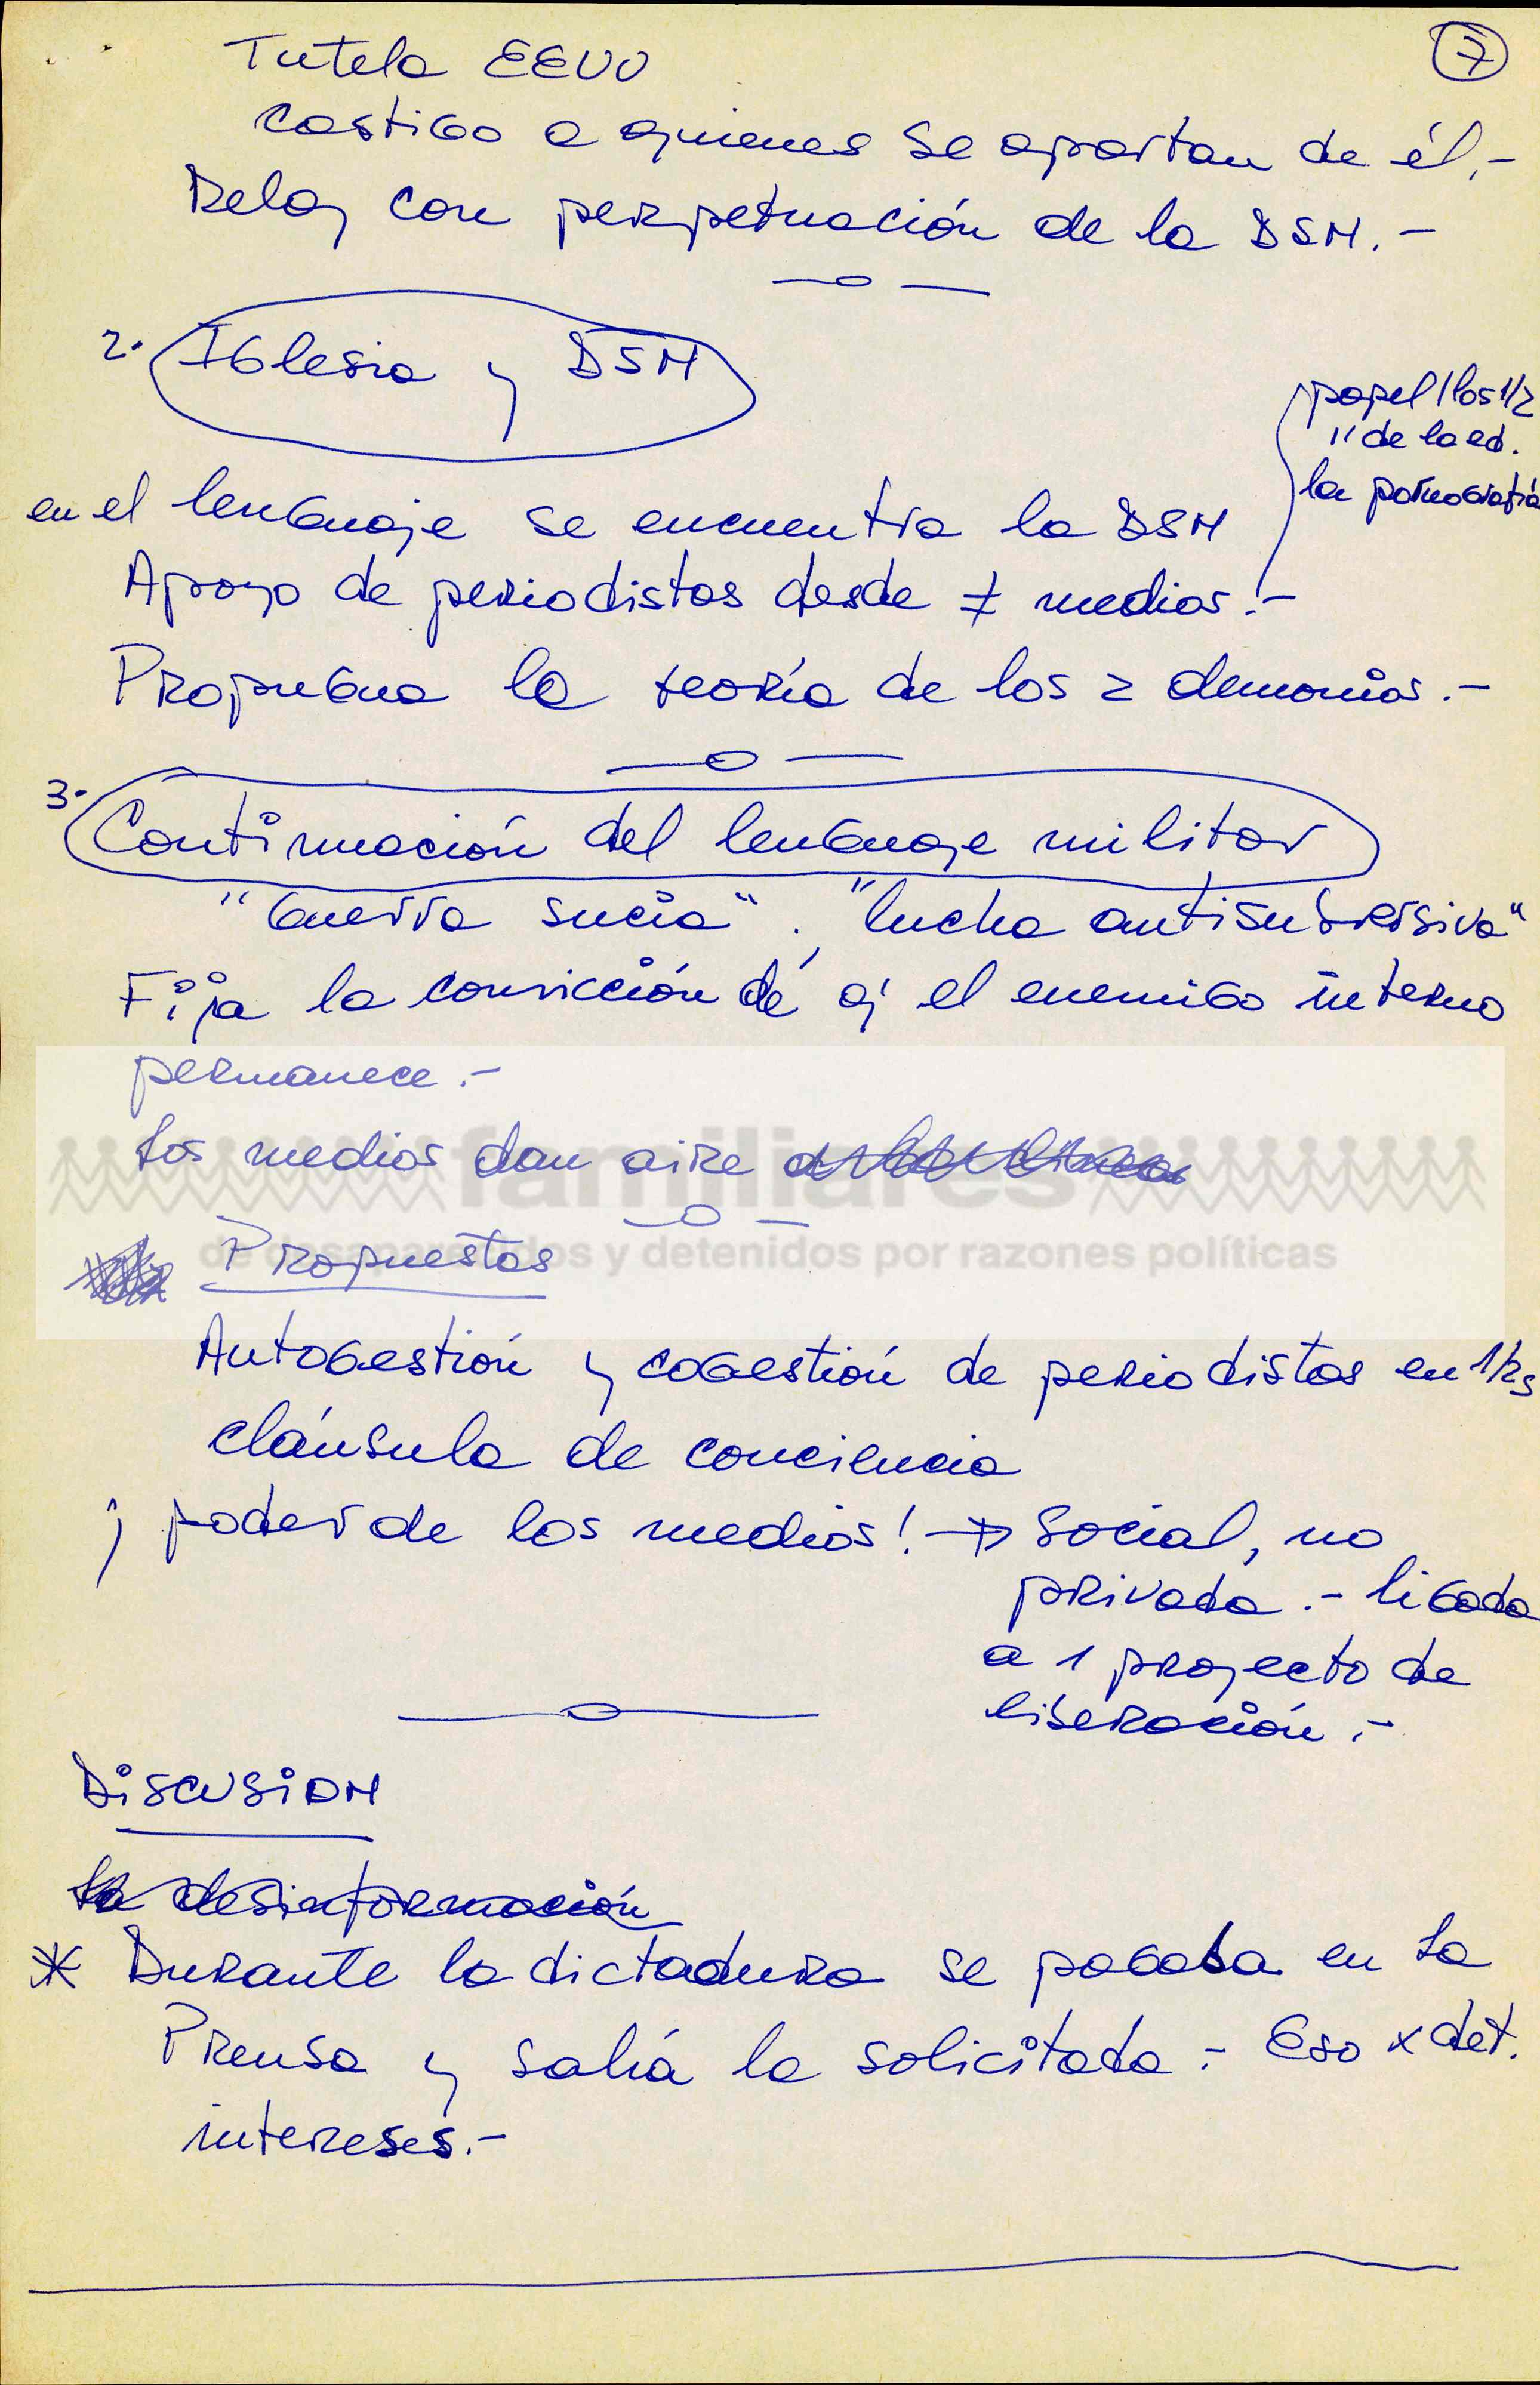 7
Tutela EEUU
castigo a quienes se apartan de él.-
Relaç con perpetuación de la DSN.-
2. Iglesia y DSN
papel / los 1/2
" de la ed.
la pornografía
en el lenguaje se encuentra la DSN
Apoyo de periodistas desde ≠ medios.-
Propugna la teoría de los 2 demonios.-
3. Continuación del lenguaje militar
"Guerra sucia". "lucha antisubversiva"
Fija la convicción de q' el enemigo interno
permanece.-
Los medios dan aire
familiares
de desaparecidos y detenidos por razones políticas
Propuestas
Autogestión y cogestión de periodistas en 1/2s
cláusula de conciencia
¡poder de los medios! → Social, no
privada.- ligada
a 1 proyecto de
liberación.-
DISCUSION
La desinformación
* Durante la dictadura se pagaba en La
Prensa y salía la solicitada.- Eso x det.
intereses.-